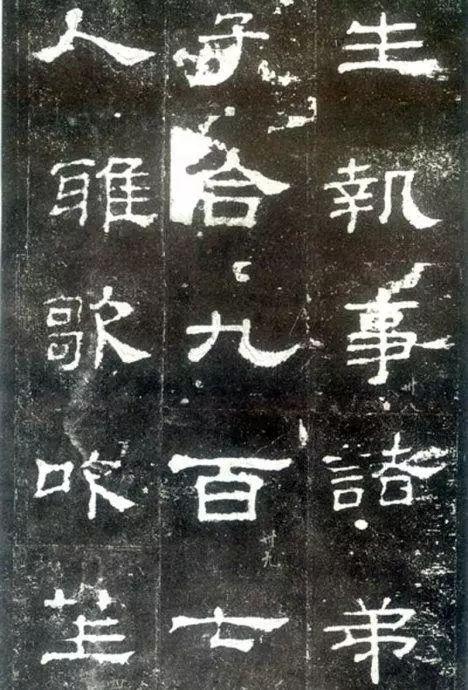 生執事諸弟
子合九百七
人雅歌吹笙
廿九